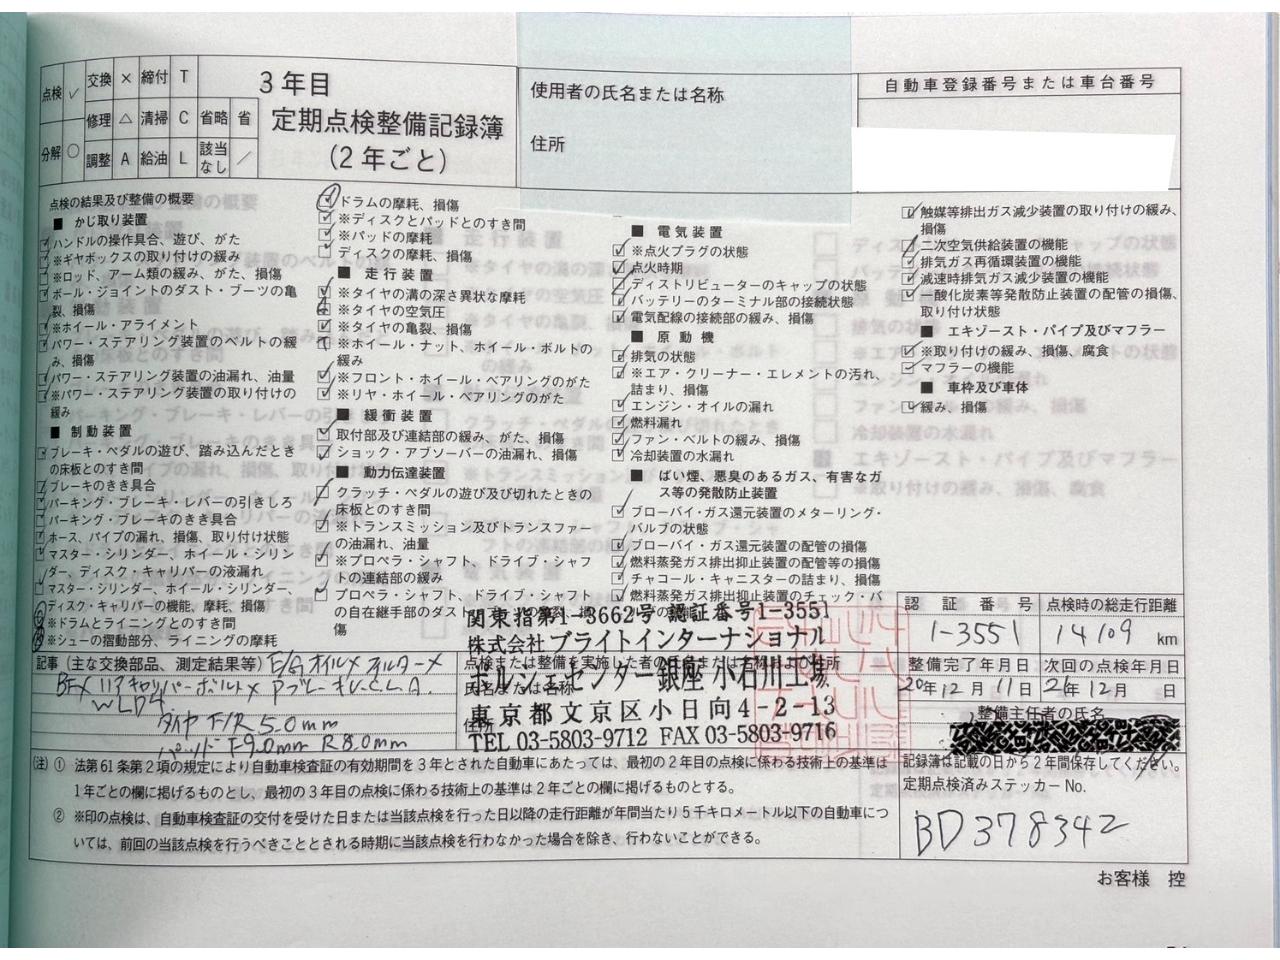 点検 ✓ 交換 × 締付 T
修理 △ 清掃 C 省略 省
分解 ○ 調整 A 給油 L 該当なし ／
3年目
定期点検整備記録簿
(2年ごと)
使用者の氏名または名称
住所
自動車登録番号または車台番号
点検の結果及び整備の概要
■ かじ取り装置
ハンドルの操作具合、遊び、がた
※ギヤボックスの取り付けの緩み
※ロッド、アーム類の緩み、がた、損傷
ボール・ジョイントのダスト・ブーツの亀
裂、損傷
※ホイール・アライメント
パワー・ステアリング装置のベルトの緩
み、損傷
パワー・ステアリング装置の油漏れ、油量
※パワー・ステアリング装置の取り付けの
緩み
■ 制動装置
ブレーキ・ペダルの遊び、踏み込んだとき
の床板とのすき間
ブレーキのきき具合
パーキング・ブレーキ・レバーの引きしろ
パーキング・ブレーキのきき具合
ホース、パイプの漏れ、損傷、取り付け状態
マスター・シリンダー、ホイール・シリン
ダー、ディスク・キャリパーの液漏れ
マスター・シリンダー、ホイール・シリンダー、
ディスク・キャリパーの機能、摩耗、損傷
※ドラムとライニングとのすき間
※シューの摺動部分、ライニングの摩耗
ドラムの摩耗、損傷
※ディスクとパッドとのすき間
※パッドの摩耗
ディスクの摩耗、損傷
■ 走行装置
※タイヤの溝の深さ異状な摩耗
※タイヤの空気圧
※タイヤの亀裂、損傷
※ホイール・ナット、ホイール・ボルトの
緩み
※フロント・ホイール・ベアリングのがた
※リヤ・ホイール・ベアリングのがた
■ 緩衝装置
取付部及び連結部の緩み、がた、損傷
ショック・アブソーバーの油漏れ、損傷
■ 動力伝達装置
クラッチ・ペダルの遊び及び切れたときの
床板とのすき間
※トランスミッション及びトランスファー
の油漏れ、油量
※プロペラ・シャフト、ドライブ・シャフ
トの連結部の緩み
プロペラ・シャフト、ドライブ・シャフト
の自在継手部のダスト
傷
■ 電気装置
※点火プラグの状態
点火時期
ディストリビューターのキャップの状態
バッテリーのターミナル部の接続状態
電気配線の接続部の緩み、損傷
■ 原動機
排気の状態
※エア・クリーナー・エレメントの汚れ、
詰まり、損傷
エンジン・オイルの漏れ
燃料漏れ
ファン・ベルトの緩み、損傷
冷却装置の水漏れ
■ ばい煙、悪臭のあるガス、有害なガ
ス等の発散防止装置
ブローバイ・ガス還元装置のメターリング・
バルブの状態
ブローバイ・ガス還元装置の配管の損傷
燃料蒸発ガス排出抑止装置の配管等の損傷
チャコール・キャニスターの詰まり、損傷
燃料蒸発ガス排出抑止装置のチェック・バ
触媒等排出ガス減少装置の取り付けの緩み、
損傷
二次空気供給装置の機能
排気ガス再循環装置の機能
減速時排気ガス減少装置の機能
一酸化炭素等発散防止装置の配管の損傷、
取り付け状態
■ エキゾースト・パイプ及びマフラー
※取り付けの緩み、損傷、腐食
マフラーの機能
■ 車枠及び車体
緩み、損傷
関東指第1-3662号 認証番号1-3551
株式会社ブライトインターナショナル
ポルシェセンター銀座 小石川工場
東京都文京区小日向4-2-13
TEL 03-5803-9712 FAX 03-5803-9716
点検または整備を実施した者の氏名または名称および住所
氏名または名称
住所
認証番号
1-3551
点検時の総走行距離
14109 km
整備完了年月日
20年12月11日
次回の点検年月日
21年12月 日
整備主任者の氏名
記事(主な交換部品、測定結果等) E/Gオイル× フィルター×
BF× リアキャリパーボルト×
タイヤ F/R 5.0mm
パッド F9.0mm R8.0mm
(注) ① 法第61条第2項の規定により自動車検査証の有効期間を3年とされた自動車にあたっては、最初の2年目の点検に係わる技術上の基準は
1年ごとの欄に掲げるものとし、最初の3年目の点検に係わる技術上の基準は2年ごとの欄に掲げるものとする。
② ※印の点検は、自動車検査証の交付を受けた日または当該点検を行った日以降の走行距離が年間当たり5千キロメートル以下の自動車につ
いては、前回の当該点検を行うべきこととされる時期に当該点検を行わなかった場合を除き、行わないことができる。
記録簿は記載の日から2年間保存してください。
定期点検済みステッカーNo.
BD378342
お客様 控